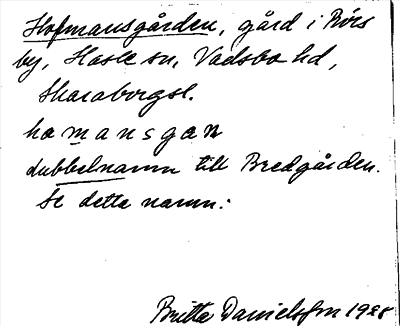 Hofmansgården, gård i Rörs
by, Hassle sn, Vadsbo hd,
Skaraborgsl.
hamansgan
dubbelnamn till Bredgården.
Se detta namn.
Britta Danielsson